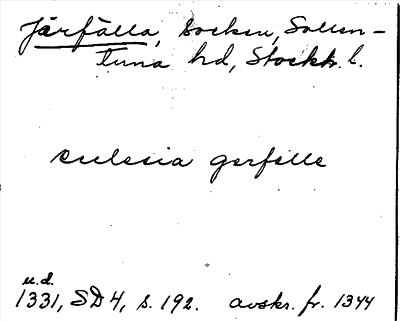 Järfälla, socken, Sollen-
tuna hd, Stockh. l.
ecclesia gerfelle
u.d.
1331, SD 4, s. 192. avskr. fr. 1344